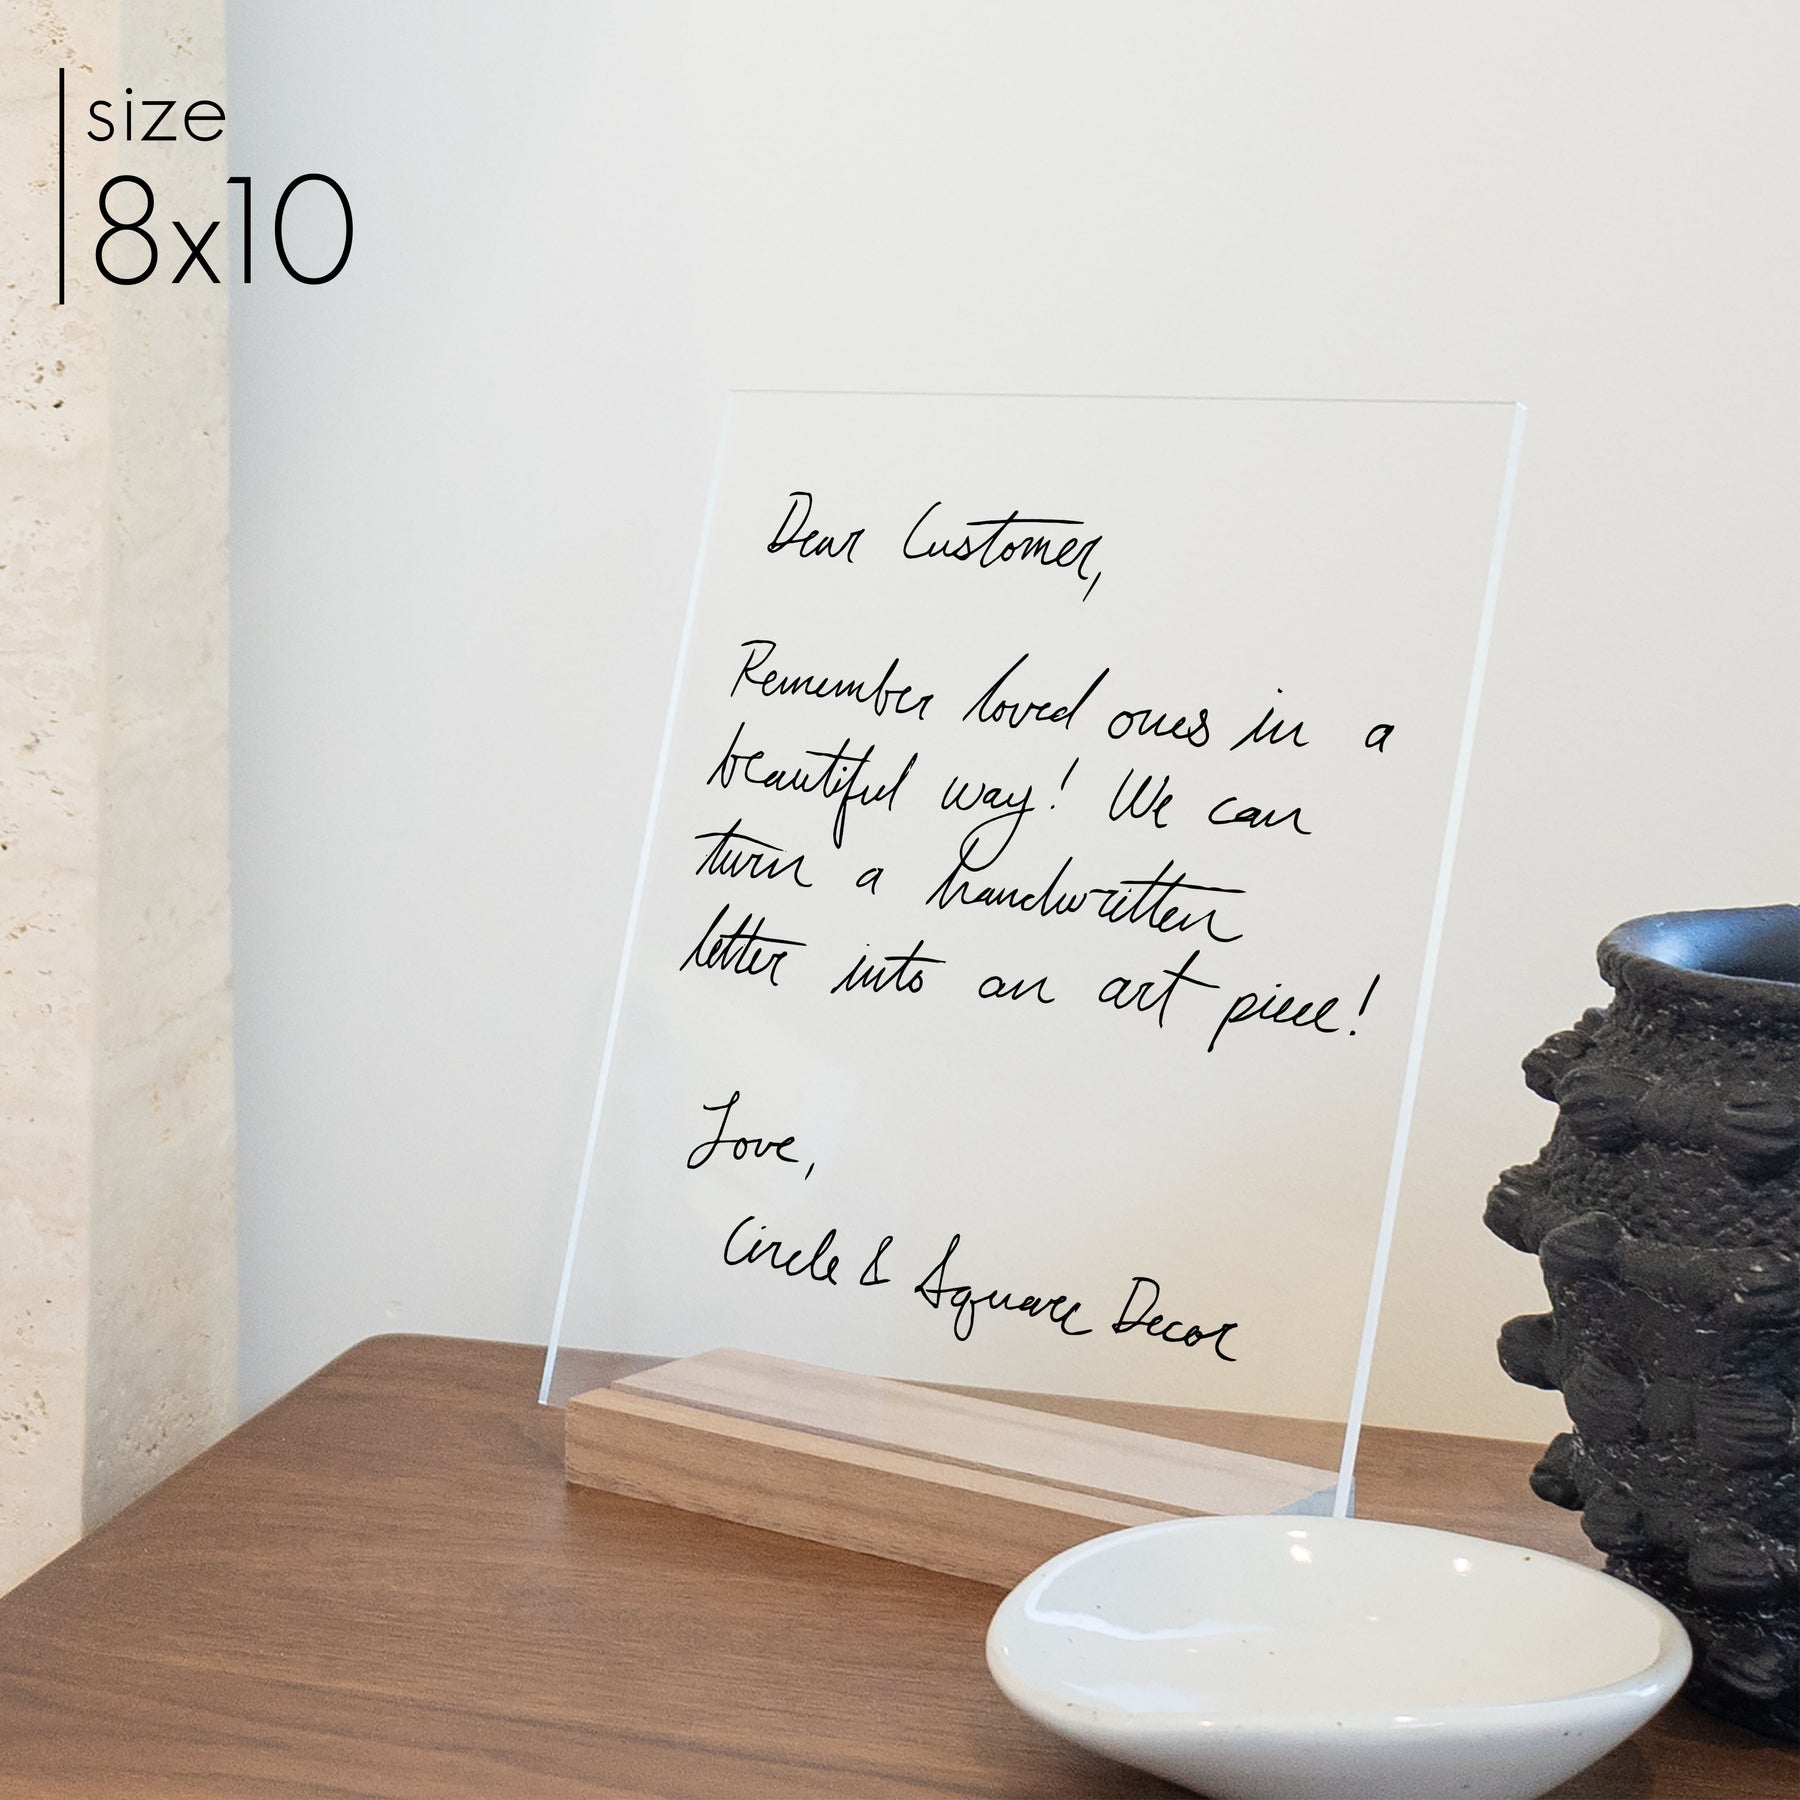 size
8x10
Dear Customer,
Remember loved ones in a
beautiful way! We can
turn a handwritten
letter into an art piece!
Love,
Circle & Square Decor